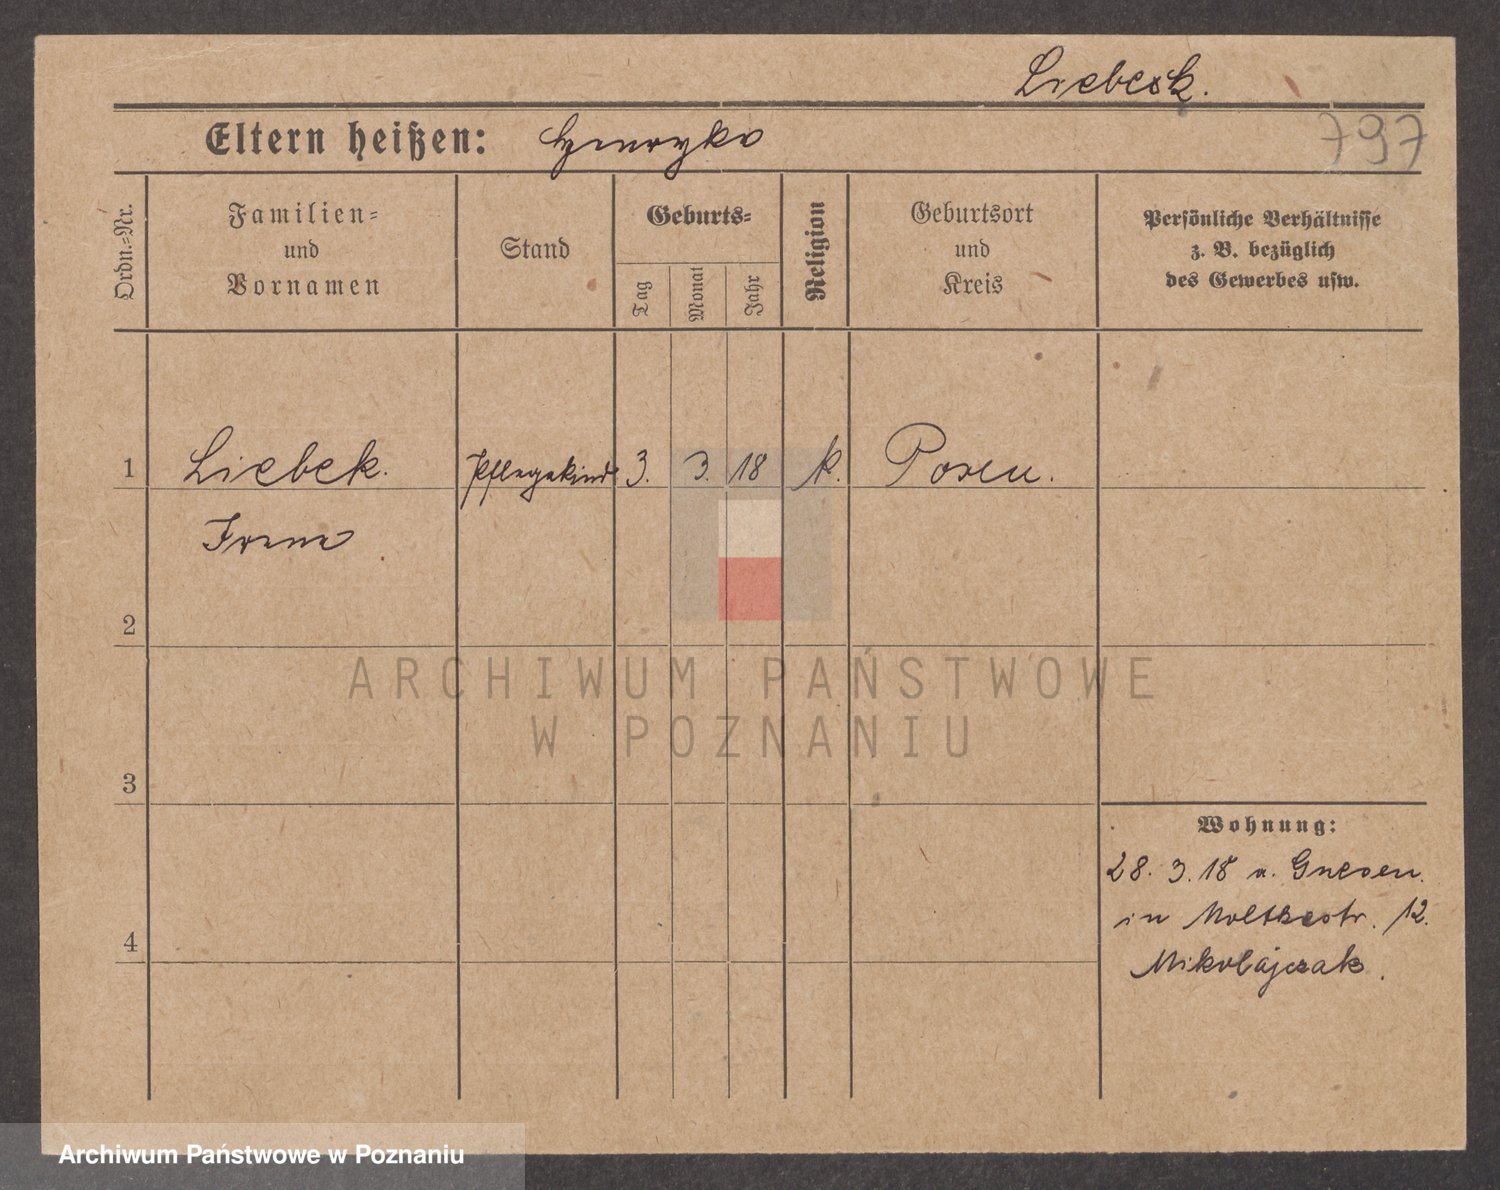 Liebesk.
797
Eltern heißen:
Ordn.=Nr.
Familien=
und
Vornamen
Stand
Geburts=
Tag
Monat
Jahr
Religion
Geburtsort
und
Kreis
Persönliche Verhältnisse
z. B. bezüglich
des Gewerbes usw.
1 Liebek. Pflegekind 3. 3. 18 k. Posen.
Irene
2
3
4
Wohnung:
28. 3. 18 v. Gnesen.
in Moltkestr. 12.
Mikolajczak.
ARCHIWUM PAŃSTWOWE
W POZNANIU
Archiwum Państwowe w Poznaniu